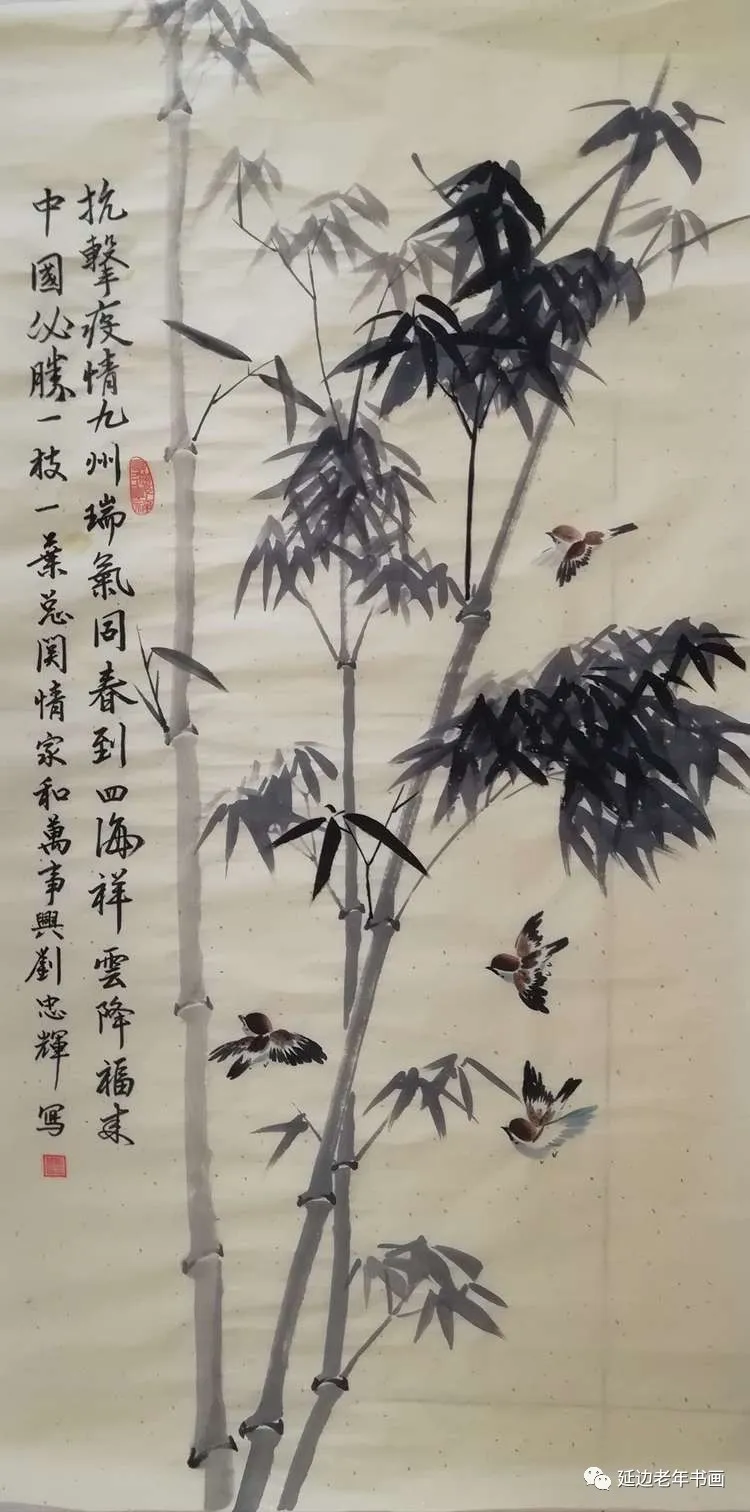 抗擊疫情九州瑞氣同春到四海祥雲降福來
中國必勝一枝一葉总関情家和萬事興劉忠輝寫
延边老年书画